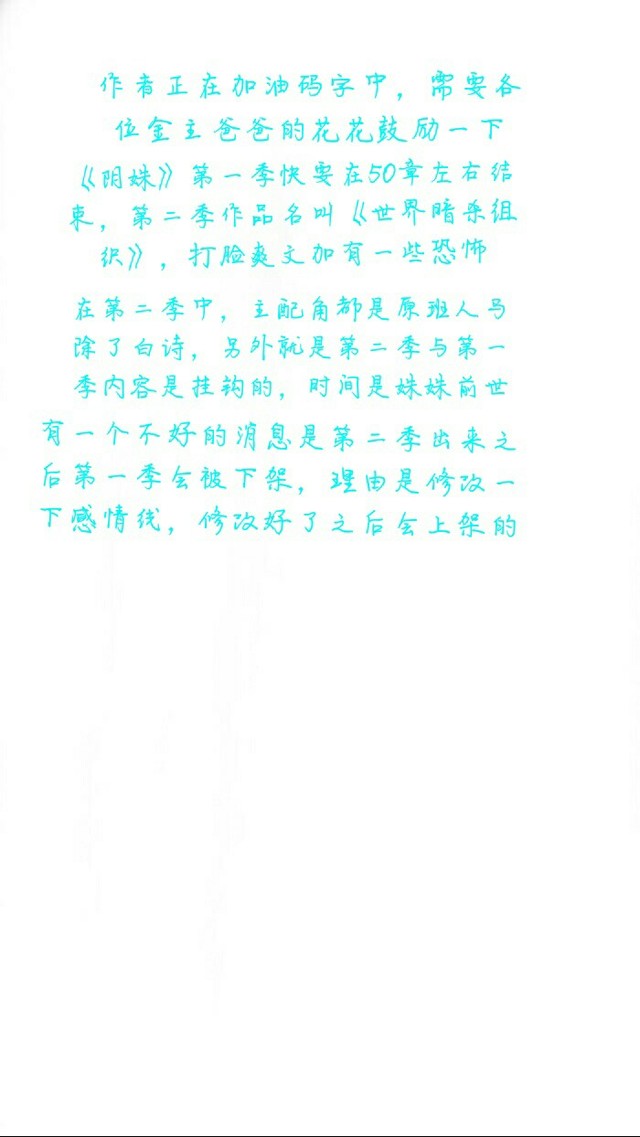 作者正在加油码字中，需要各
位金主爸爸的花花鼓励一下
《阴姝》第一季快要在50章左右结
束，第二季作品名叫《世界暗杀组
织》，打脸爽文加有一些恐怖
在第二季中，主配角都是原班人马
除了白诗，另外就是第二季与第一
季内容是挂钩的，时间是姝姝前世
有一个不好的消息是第二季出来之
后第一季会被下架，理由是修改一
下感情线，修改好了之后会上架的